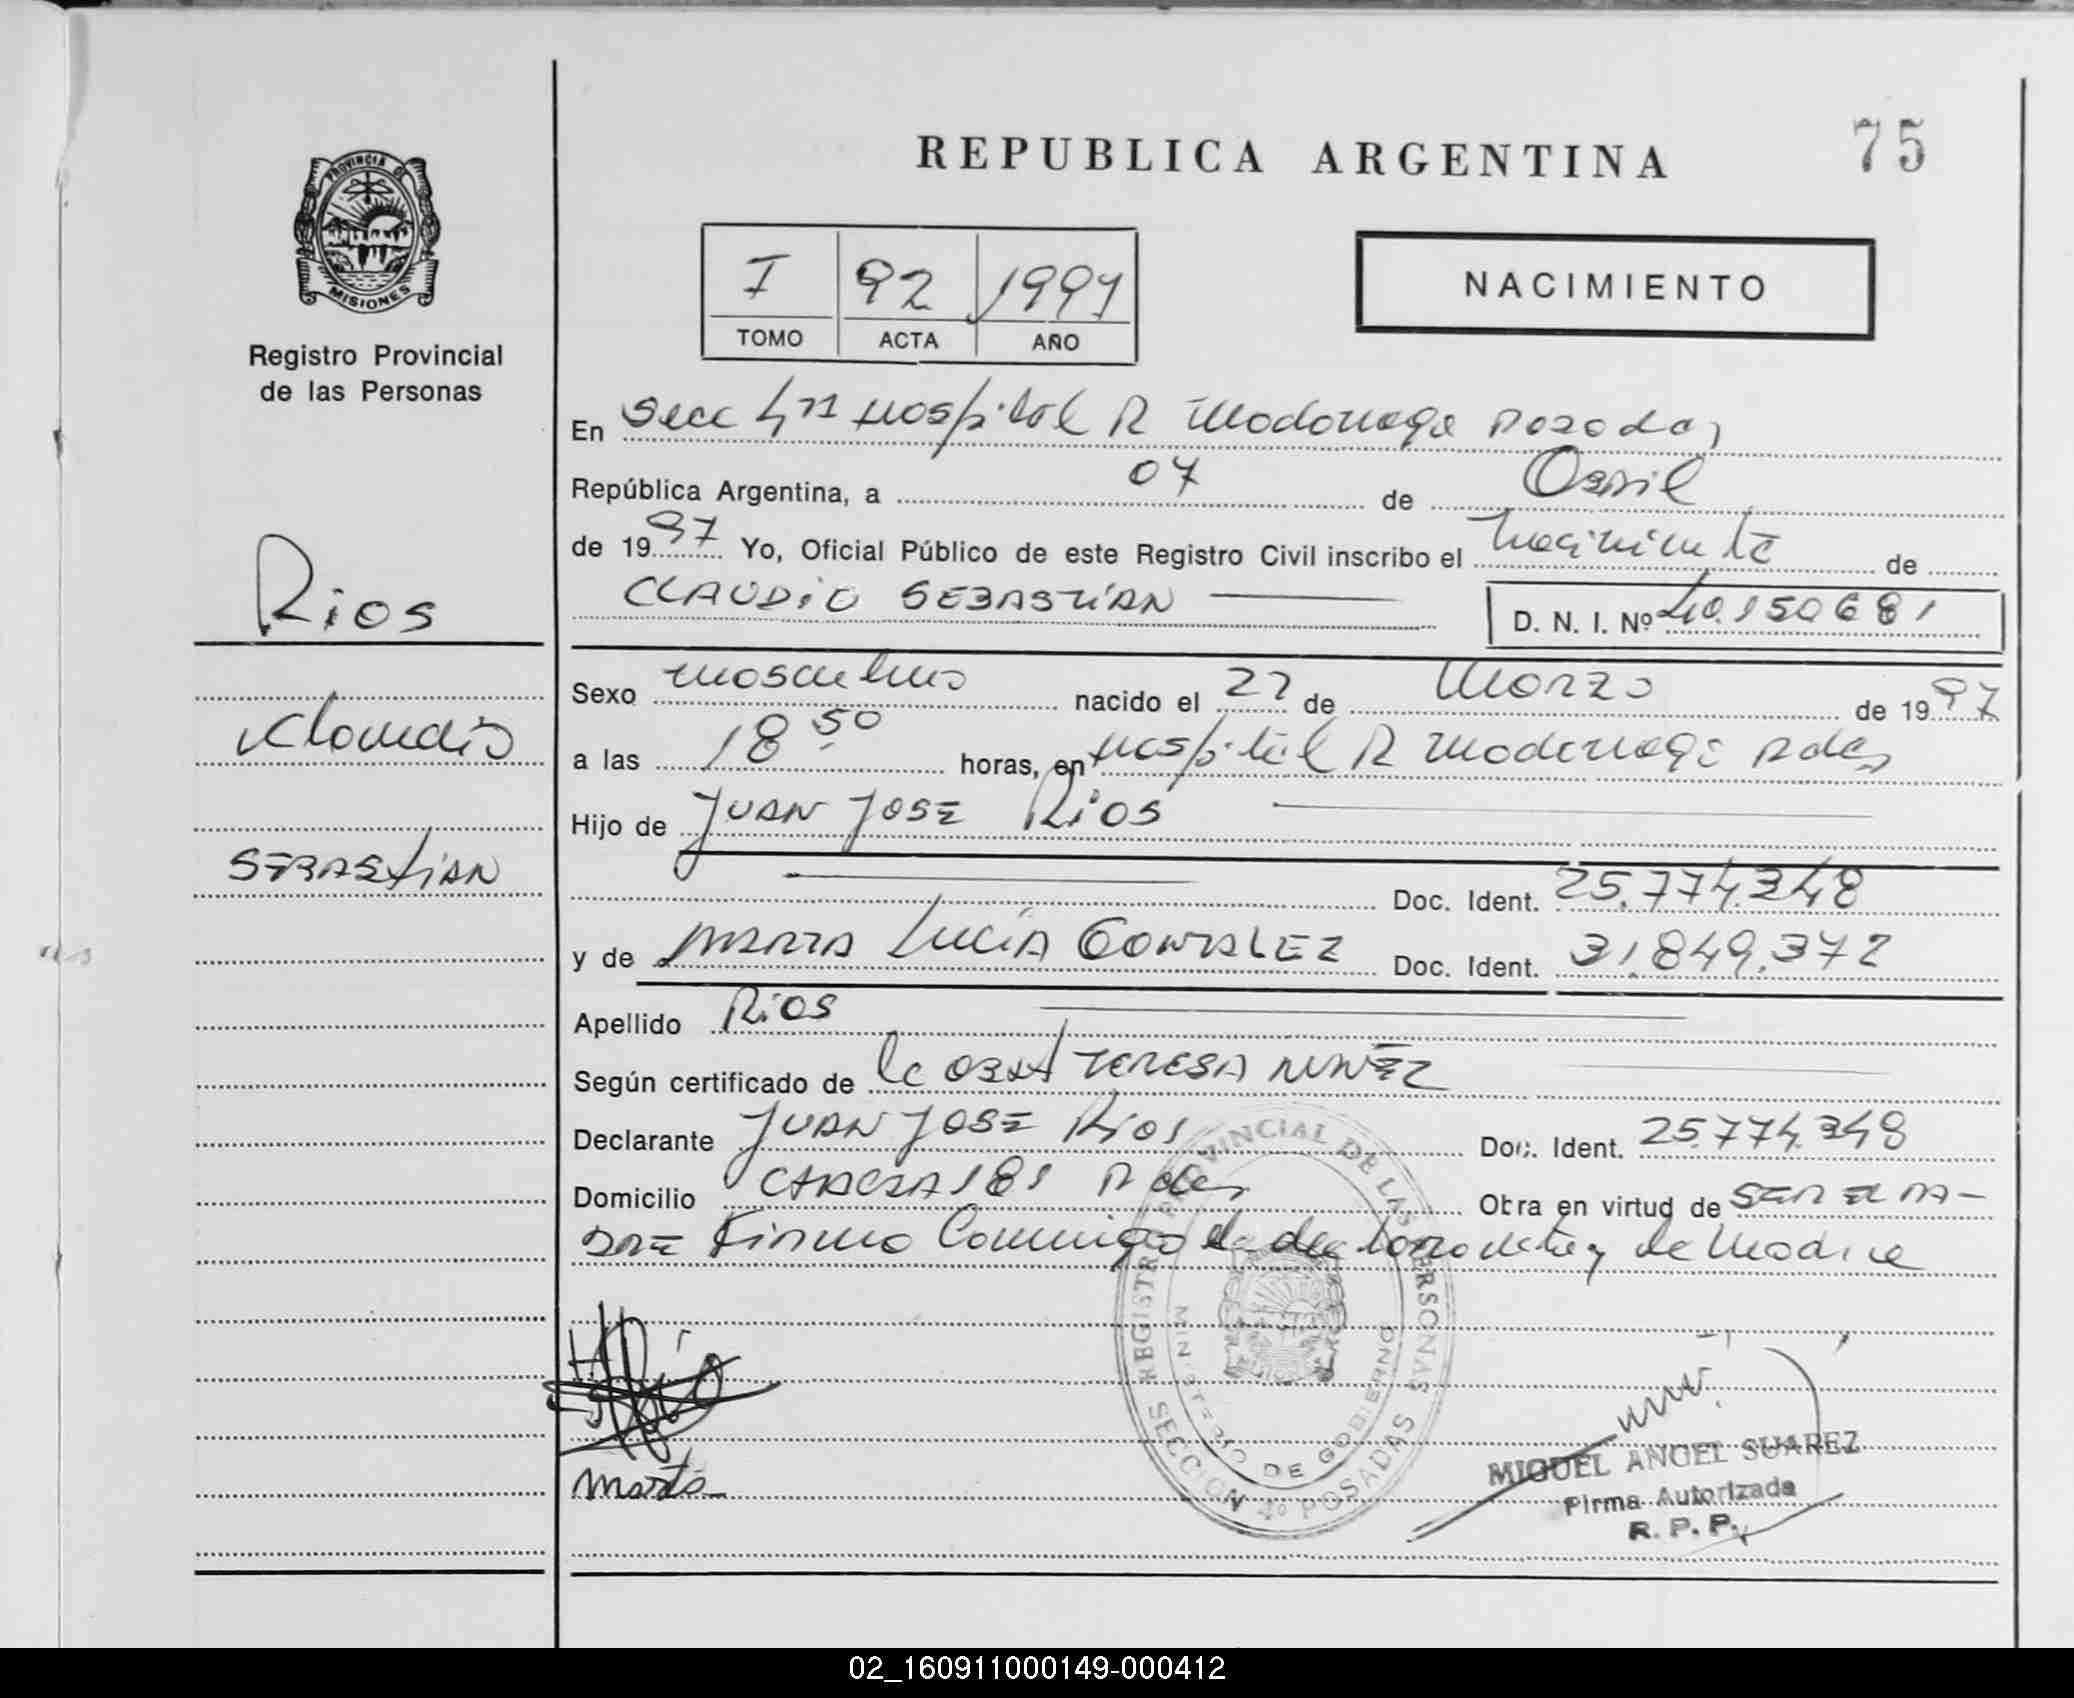 REPUBLICA ARGENTINA
75
PROVINCIA DE
MISIONES
Registro Provincial
de las Personas
I 92 1997
TOMO ACTA AÑO
NACIMIENTO
En Secc 4ta Hospital R Madariaga Posadas
República Argentina, a 07 de Abril
de 1997 Yo, Oficial Público de este Registro Civil inscribo el nacimiento de
CLAUDIO SEBASTIAN
D. N. I. Nº 40.150681
Rios
Claudio
SEBASTIAN
Sexo masculino nacido el 22 de Marzo de 1997
a las 18 50 horas, en Hospital R Madariaga Pdas
Hijo de JUAN JOSE RIOS
Doc. Ident. 25.774.348
y de MARTA LUCIA GONZALEZ Doc. Ident. 31.849.372
Apellido RIOS
Según certificado de la OBST TERESA NUÑEZ
Declarante JUAN JOSE RIOS Doc. Ident. 25.774.348
Domicilio 181 Pdas Obra en virtud de SER EL PA-
DRE Firma Conmigo el declarante y la Madre
REGISTRO PROVINCIAL DE LAS PERSONAS
MINISTERIO DE GOBIERNO
SECCION 4º POSADAS
Marta
MIGUEL ANGEL SUAREZ
Firma Autorizada
R. P. P.
02_160911000149-000412